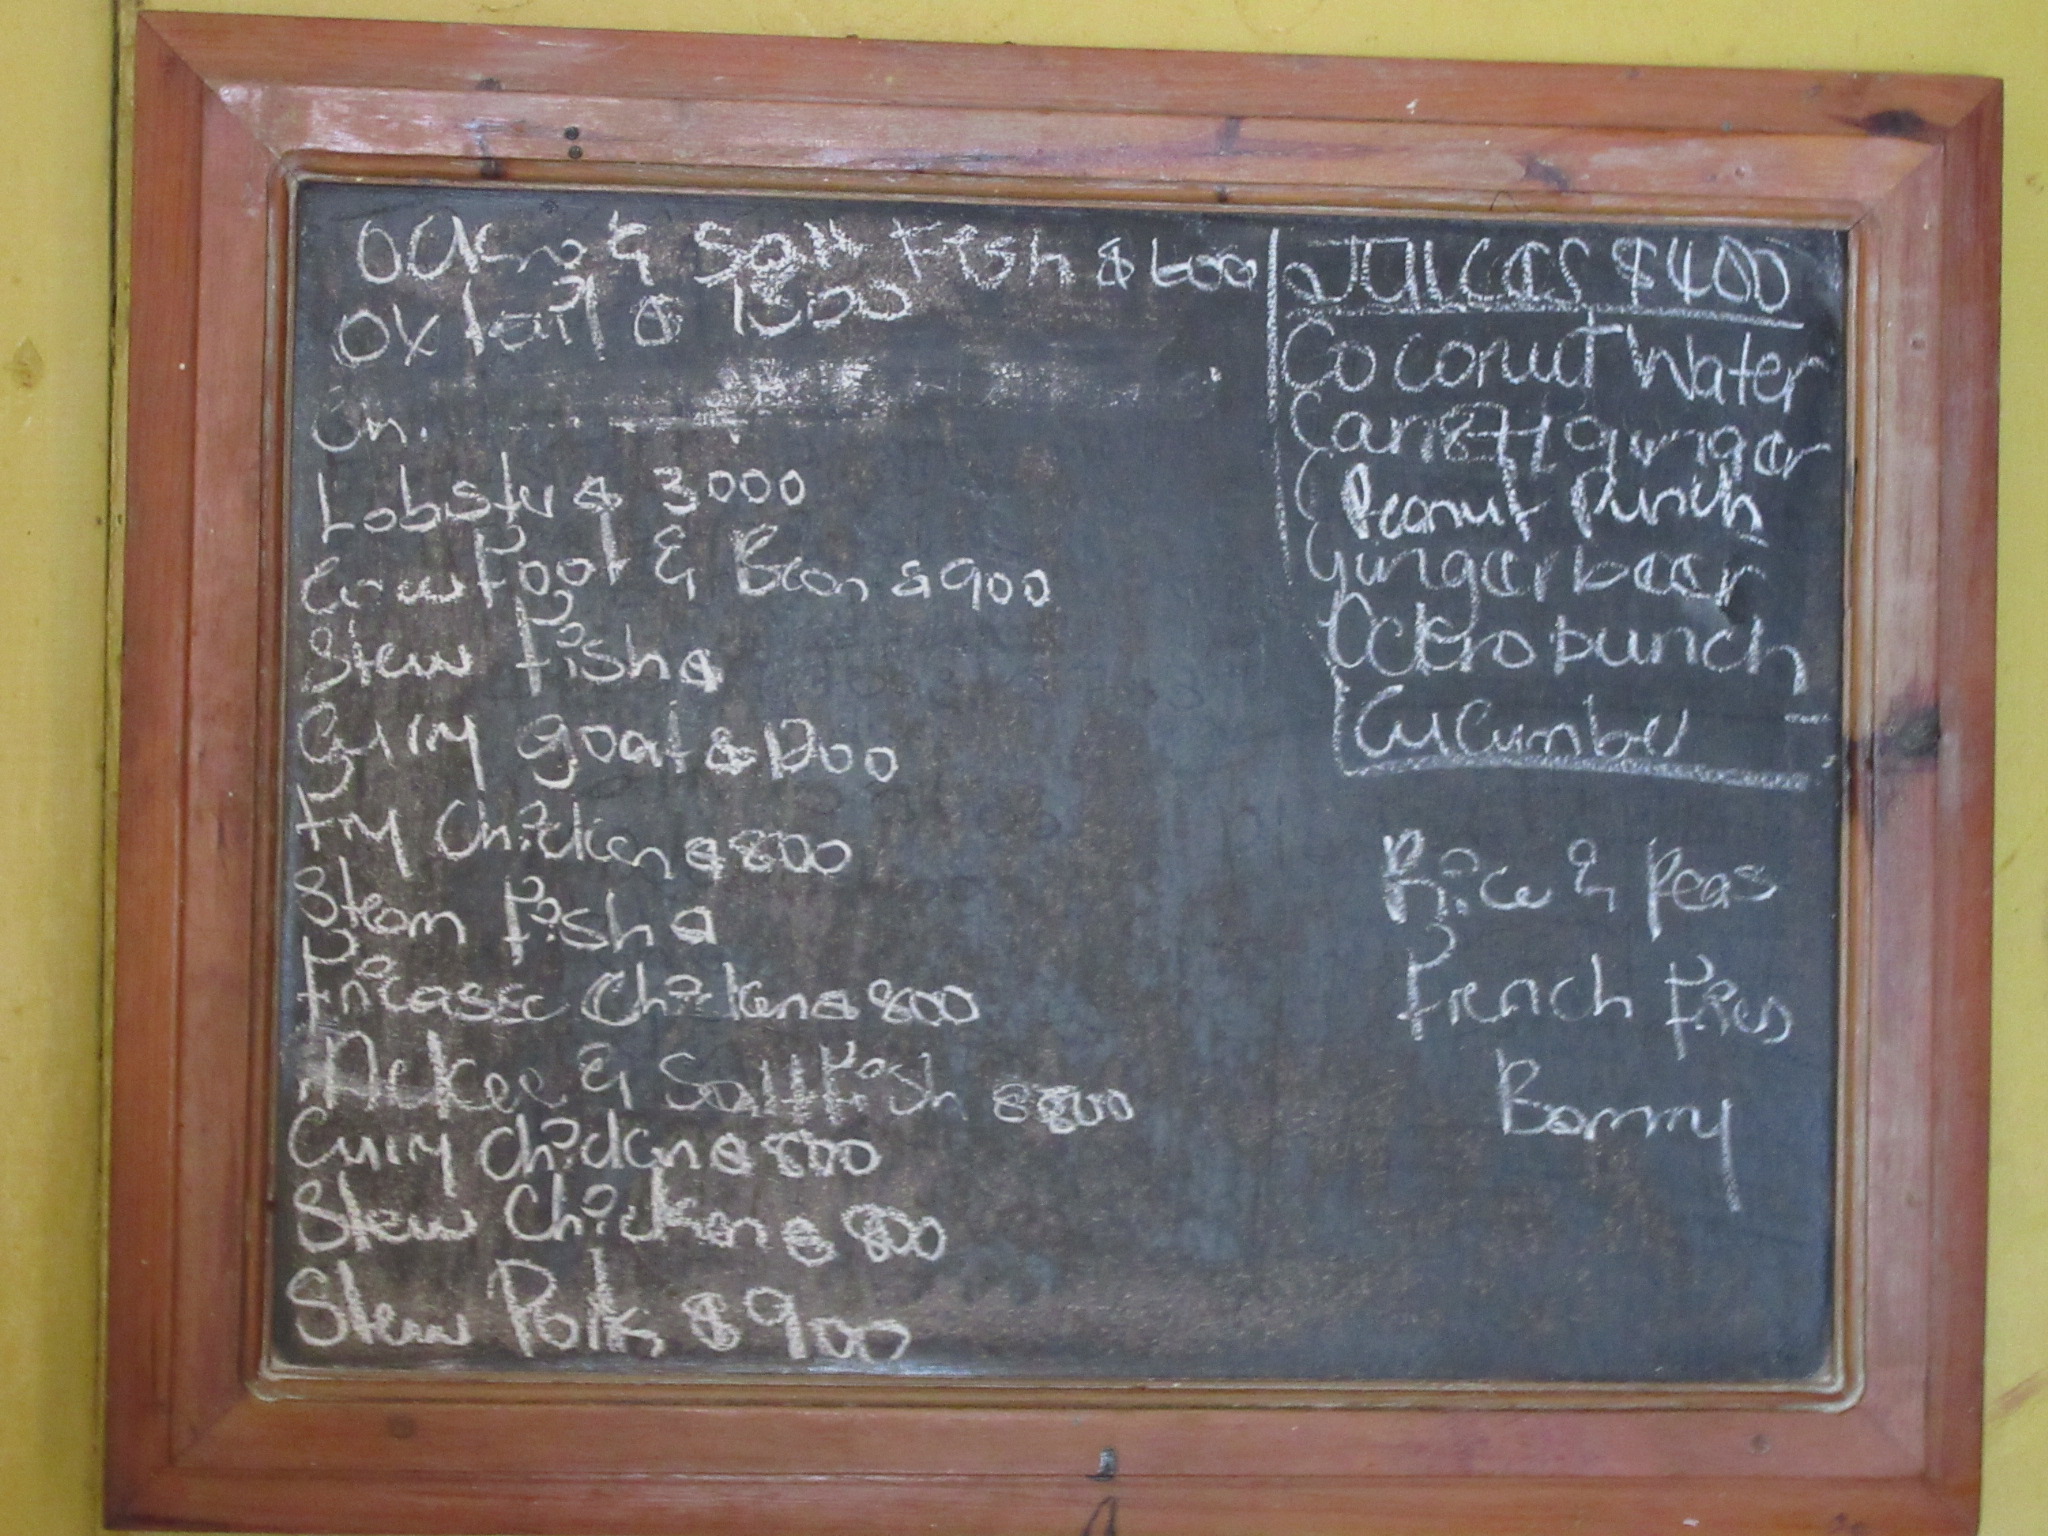 Ockro & Salt Fish $600
Oxtail $ 1500
Lobster $ 3000
Cow Foot & Bean $900
Stew Fish $
Curry goat $1200
Fry Chicken $800
Steam Fish $
Fricasse Chicken $800
Ackee & Salt Fish $800
Curry Chicken $800
Stew Chicken $ 800
Stew Pork $900
Juices $400
Coconut Water
Cane & ginger
Peanut Punch
Gingerbeer
Ockro punch
Cucumber
Rice & Peas
French Fries
Bammy